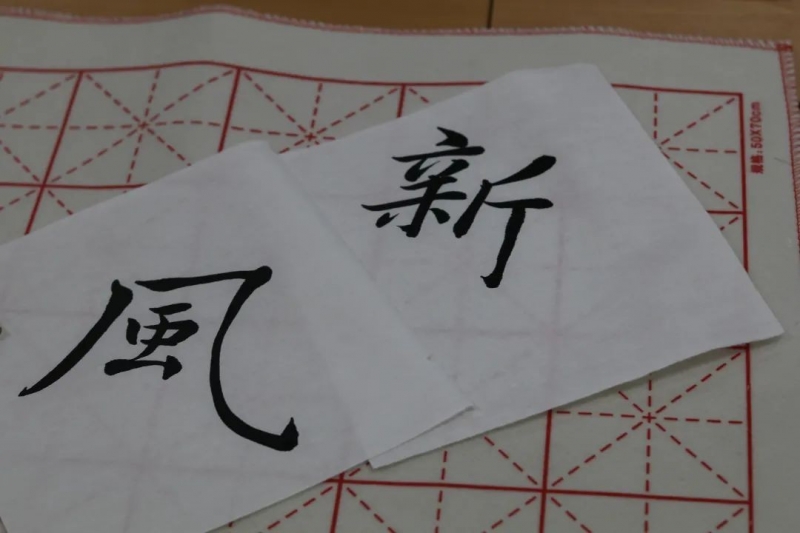 新
風
规格:50X70cm